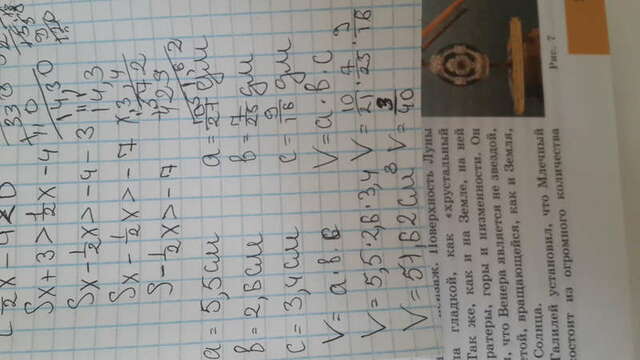 ½x - 4 < 0
5x + 3 > ½x - 4
5x - ½x > -4 - 3
5x - ½x > -7
5 - ½x > -7
330
110
1430
14,3
x 3,4
572
429
a = 5,5 см
в = 2,6 см
c = 3,4 см
V = a · в · c
V = 5,5 · 2,6 · 3,4
V = 51,62 см³
a = 10/21 дм
в = 7/25 дм
c = 9/16 дм
V = a · в · c
V = 10/21 · 7/25 · 9/16
V = 3/40
Поверхность Луны
ла гладкой, как «хрустальный
Так же, как и на Земле, на ней
ратеры, горы и низменности. Он
л, что Венера является не звездой,
етой, вращающейся, как и Земля,
Солнца.
Галилей установил, что Млечный
состоит из огромного количества
Рис. 7